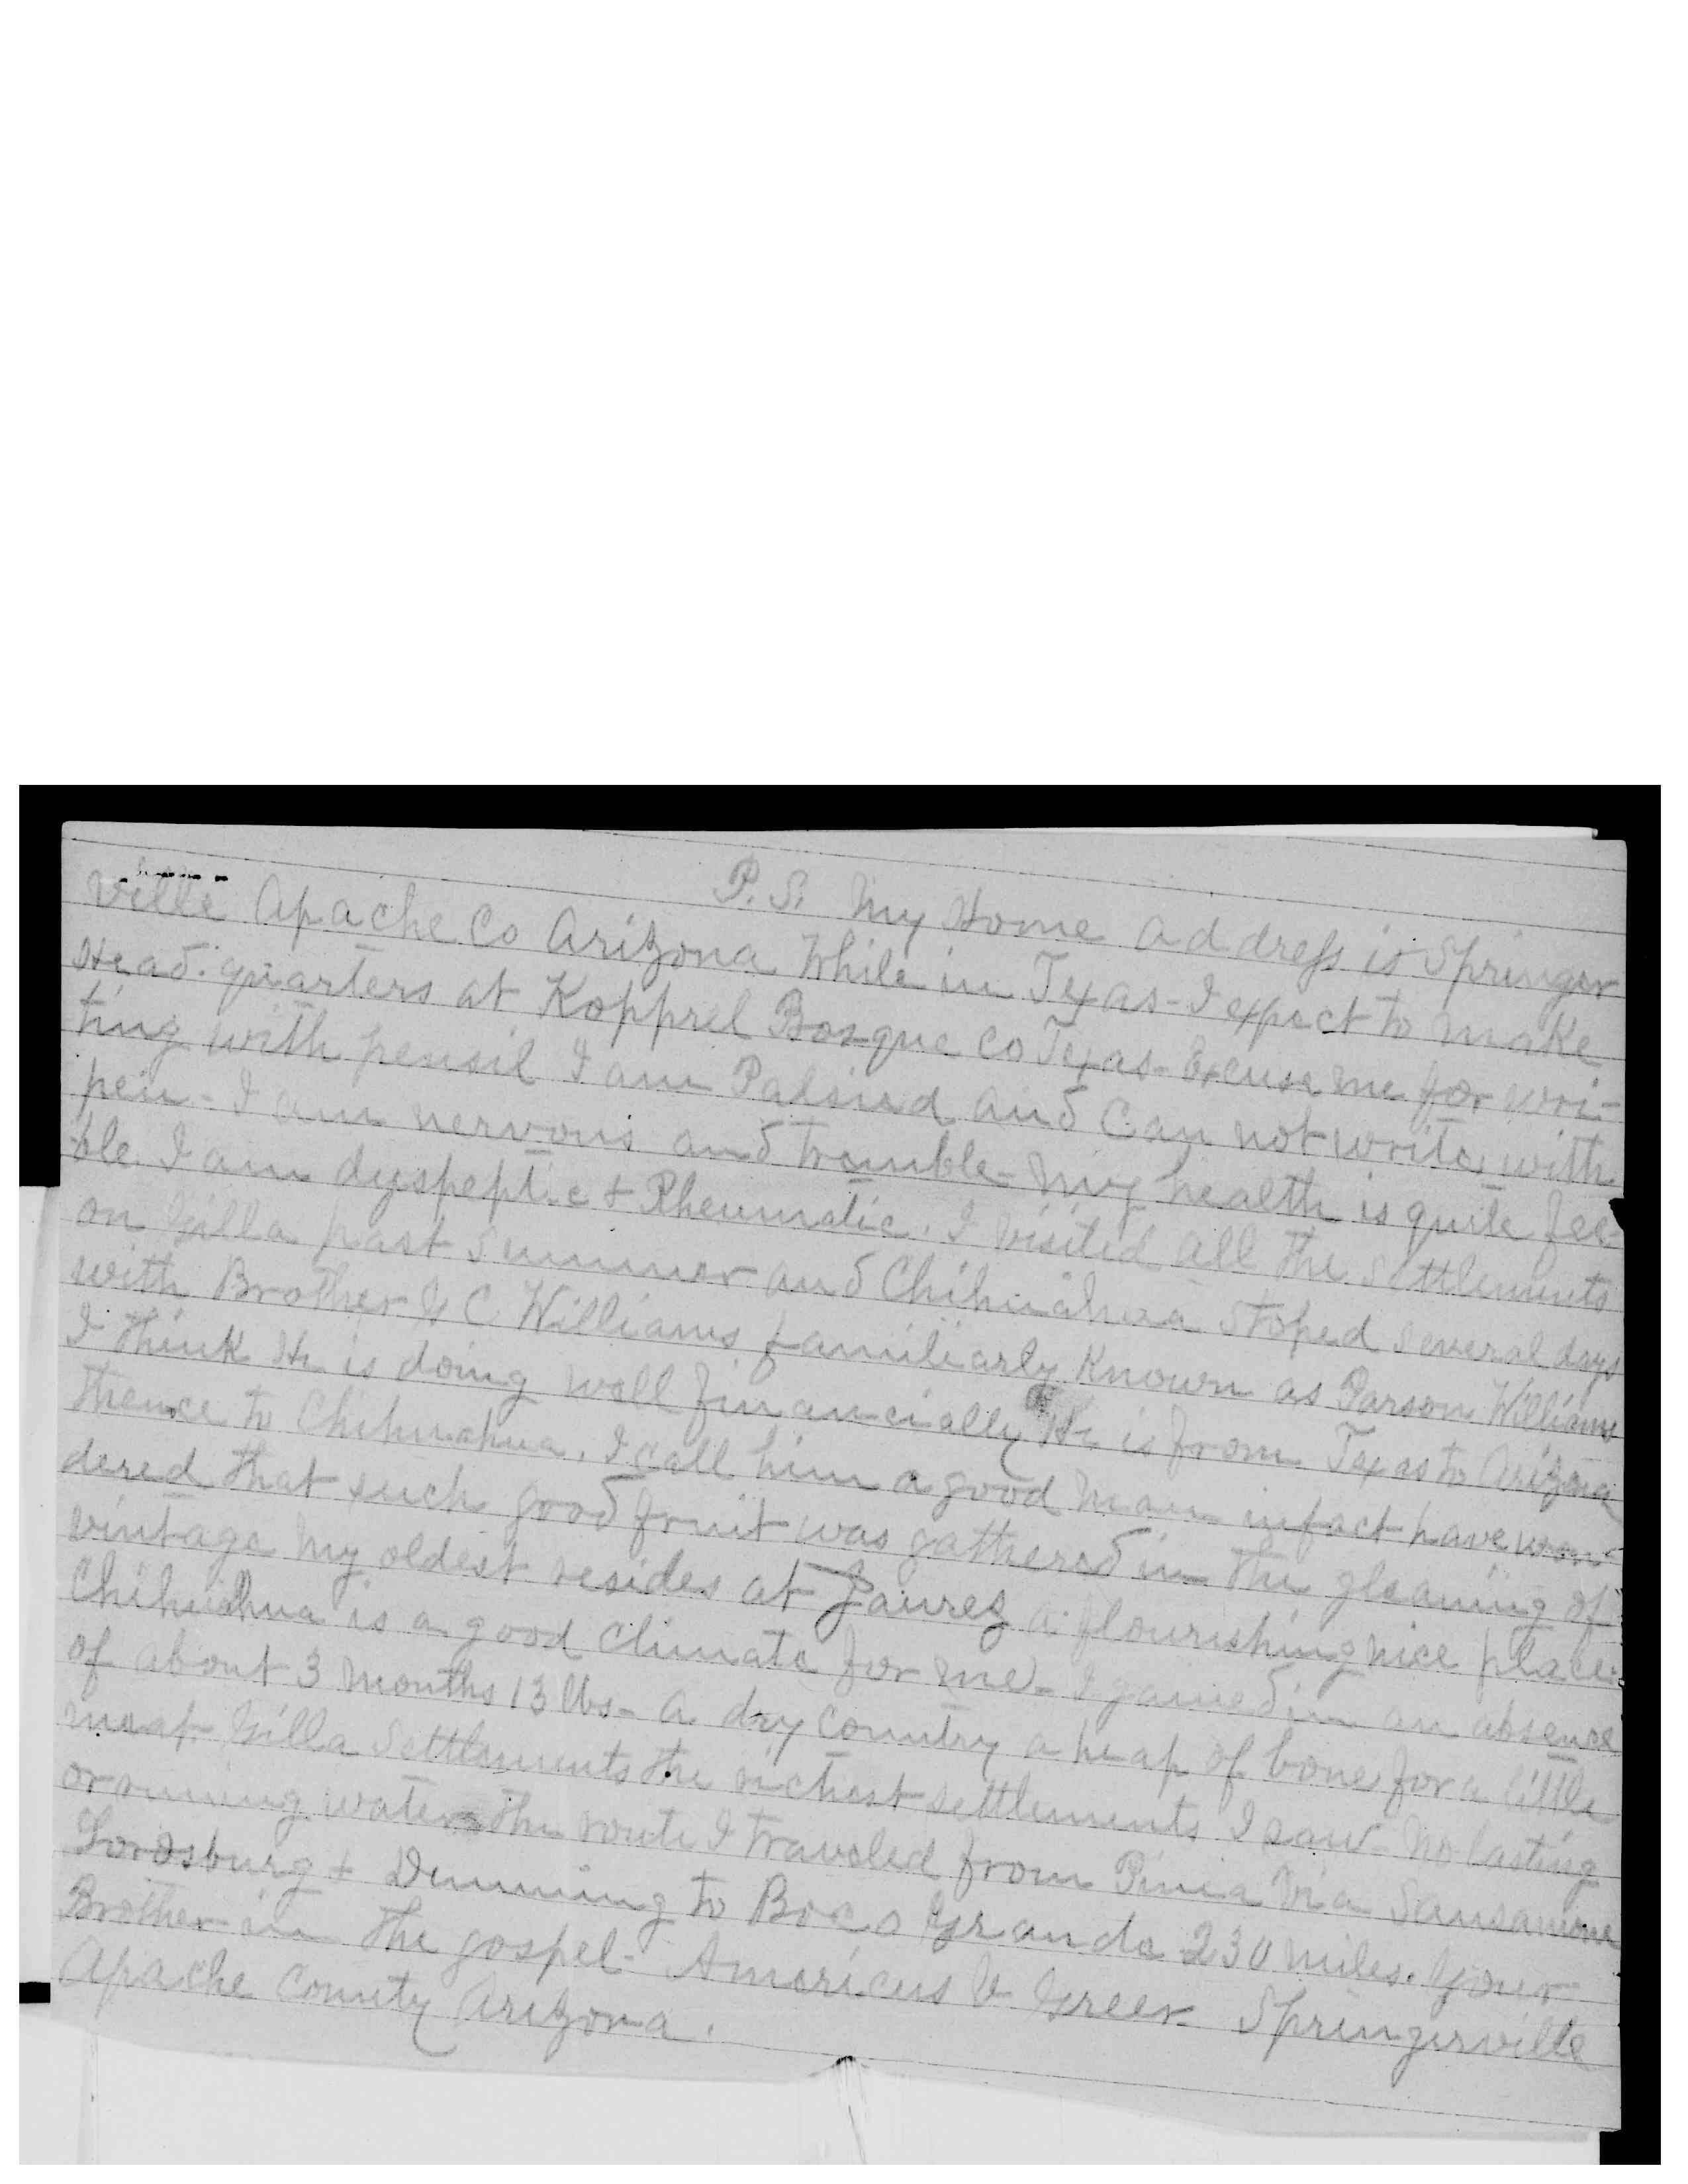 P.S. My Home address is Springer
ville Apache Co Arizona While in Texas - I expect to make
Head.quarters at Kopprel Bosque Co Texas - Excuse me for wri-
ting with pensil I am Palsied and Can not write with
pen - I am nervous and tremble - My health is quite fee-
ble. I am dyspeptic + Rheumatic. I visited all the settlements
on Gilla past summer and Chihuahua stoped several days
with Brother C Williams familiarly Known as Parson Williams
I think He is doing well financially He is from Texas to Arizona
thence to Chihuahua. I call him a good man infact have won-
dered that such good fruit was gathered in the gleaning of
vintage My oldest resides at Jaurez a flourishing nice place.
Chihuahua is a good climate for me - I gained in an absence
of about 3 months 13 lbs - a dry country a heap of bone for a little
meat - Gilla Settlements the richest settlements I saw - No lasting
or runing water the route I traveled from Pima via Sansamone
Lordsburg + Demming to Boca Grande 230 miles. Your
Brother in the gospel - Americus V Greer - Springerville
Apache County Arizona.